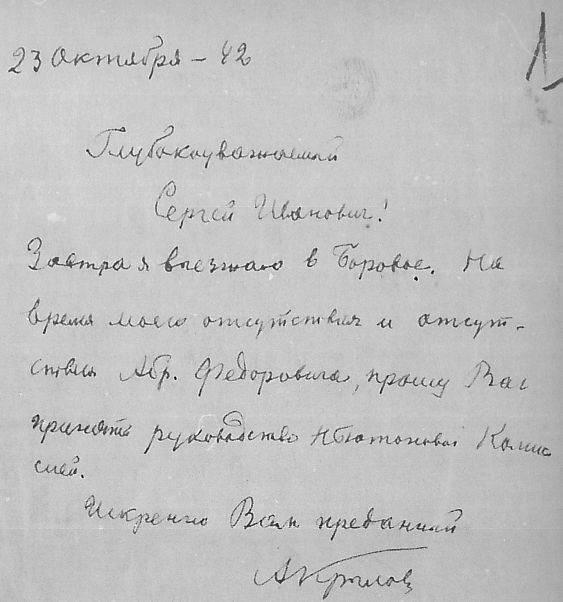 23 Октября – 42
Глубокоуважаемый
Сергей Иванович!
Завтра я выезжаю в Боровое. На
время моего отсутствия и отсут-
ствия Абр. Федоровича, прошу Вас
принять руководство Ньютоновой Комис
сией.
Искренно Вам преданный
АКрылов